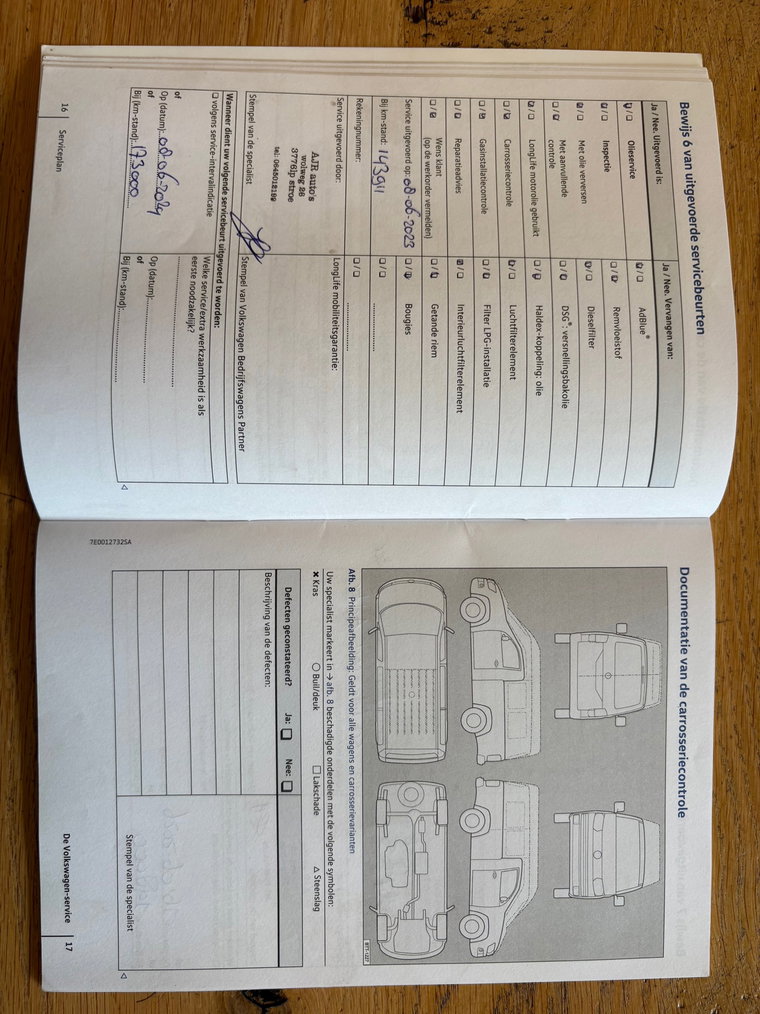 Bewijs 6 van uitgevoerde servicebeurten
Ja / Nee. Uitgevoerd is:
Ja / Nee. Vervangen van:
Olieservice
AdBlue®
Inspectie
Remvloeistof
Met olie verversen
Dieselfilter
Met aanvullende controle
DSG®: versnellingsbakolie
LongLife motorolie gebruikt
Haldex-koppeling: olie
Carrosseriecontrole
Luchtfilterelement
Gasinstallatiecontrole
Filter LPG-installatie
Reparatieadvies
Interieurluchtfilterelement
Wens klant
(op de werkorder vermelden)
Getande riem
Service uitgevoerd op: 08-06-2023
Bougies
Bij km-stand: 143911
Rekeningnummer:
Service uitgevoerd door:
LongLife mobiliteitsgarantie:
AJR auto's
wolweg 26
3776lp stroe
tel: 0645018189
Stempel van de specialist
Stempel van Volkswagen Bedrijfswagens Partner
Wanneer dient uw volgende servicebeurt uitgevoerd te worden:
volgens service-intervalindicatie
Welke service/extra werkzaamheid is als
eerste noodzakelijk?
of
Op (datum): 08-06-2024
of
Bij (km-stand): 173.000
Op (datum):
of
Bij (km-stand):
16 Serviceplan
7E0012732SA
Documentatie van de carrosseriecontrole
B1T-1227
Afb. 8 Principeafbeelding: Geldt voor alle wagens en carrosserievarianten
Uw specialist markeert in → afb. 8 beschadigde onderdelen met de volgende symbolen:
✖ Kras ○ Buil/deuk □ Lakschade △ Steenslag
Defecten geconstateerd? Ja: Nee:
Beschrijving van de defecten:
Stempel van de specialist
De Volkswagen-service 17